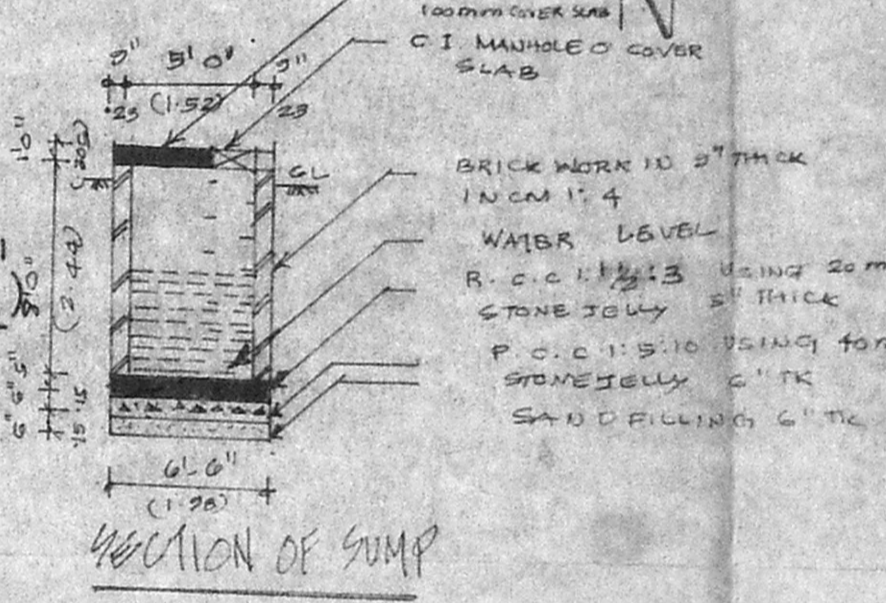 100mm COVER SLAB
C I. MANHOLE O COVER
SLAB
9" 5'0" 9"
.23 (1.52) 23
1'0"
GL
BRICK WORK IN 9" THICK
IN CM 1:4
WATER LEVEL
R.C.C 1:1½:3 USING 20 m
STONE JELLY 5" THICK
P.C.C. 1:5:10 USING 40m
STONEJELLY 6" TK
SAND FILLING 6" TK
8'0"
(2.44)
6" 6" 5"
.15 .15
6'-6"
(1.98)
SECTION OF SUMP